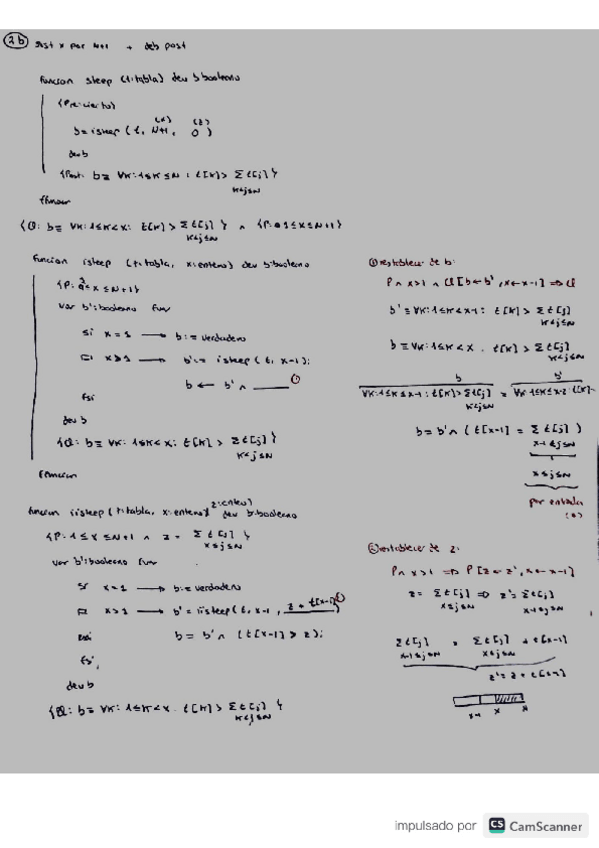 2b sust x por N+1 + deb post
funcion steep (t:tabla) dev b:booleano
{Pre: cierto}
(x) (z)
b = iisteep (t, N+1, 0)
dev b
{Post: b ≡ ∀K: 1≤K≤N : t[K] > Σt[j]}
K<j≤N
ffuncion
{Q: b ≡ ∀K: 1≤K<x: t[K] > Σt[j]} ∧ {P: 1≤x≤N+1}
K<j≤N
funcion isteep (t:tabla, x:entero) dev b:booleano
{P: 1≤x≤N+1}
var b':booleano fvar
si x=1 → b:= verdadero
□ x>1 → b':= isteep (t, x-1);
b ← b' ∧ ____ ①
fsi
dev b
{Q: b ≡ ∀K: 1≤K<x: t[K] > Σt[j]}
K<j≤N
ffuncion
① restablecer de b:
P ∧ x>1 ∧ Q[b←b', x←x-1] ⇒ Q
b' ≡ ∀K: 1≤K<x-1: t[K] > Σt[j]
K<j≤N
b ≡ ∀K: 1≤K<x. t[K] > Σt[j]
K<j≤N
b b'
∀K: 1≤K≤x-1: t[K] > Σt[j] = ∀K: 1≤K≤x-2: t[K]
K<j≤N
b = b' ∧ (t[x-1] = Σt[j])
x-1<j≤N
x≤j≤N
por entrada
z:entero)
funcion iisteep (t:tabla, x:entero) dev b:booleano
{P: 1≤x≤N+1 ∧ z = Σt[j]}
x≤j≤N
var b':booleano fvar
si x=1 → b:= verdadero
□ x>1 → b' = iisteep (t, x-1, z + t[x-1])
b = b' ∧ (t[x-1] > z);
fsi
dev b
{Q: b ≡ ∀K: 1≤K<x. t[K] > Σt[j]}
K<j≤N
② restablecer de z:
P ∧ x>1 ⇒ P[z←z', x←x-1]
z = Σt[j] ⇒ z' = Σt[j]
x≤j≤N x-1≤j≤N
Σt[j] = Σt[j] + t[x-1]
x-1≤j≤N x≤j≤N
z' = z + t[x-1]
x-1 x N
impulsado por CS CamScanner